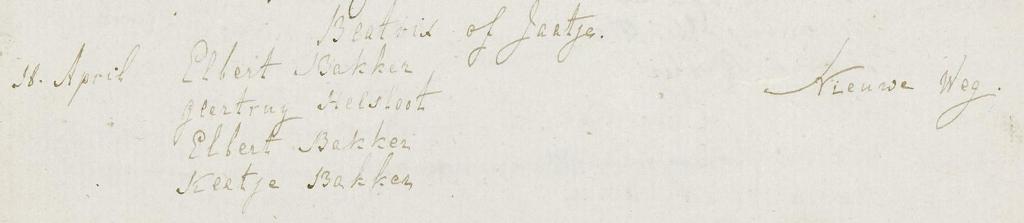 Beatrix of Jaatje.
18. April Elbert Bakker Nieuwe Weg.
geertruy Helsloot
Elbert Bakker
Keetje Bakker